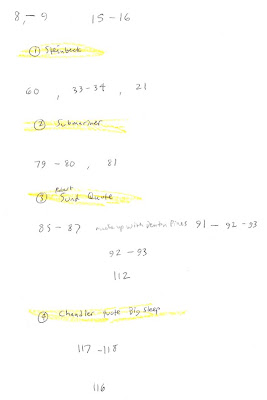 8, – 9 15 – 16
① Steinbeck
60 , 33 – 34 , 21
② Submariner
79 – 80 , 81
Robert
③ Sund Quote
85 – 87 made up with Death Fires 91 – 92 – 93
92 – 93
112
④ Chandler quote Big Sleep
117 – 118
116